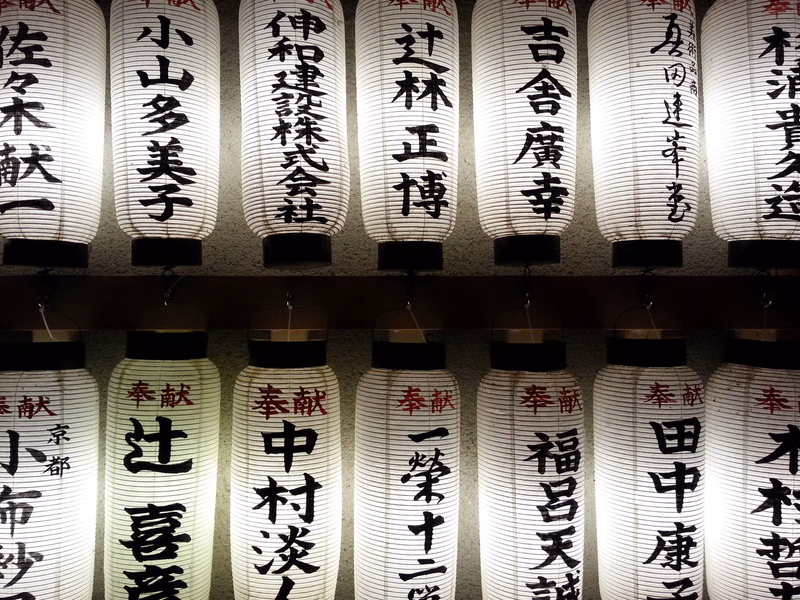 佐々木献一
奉献
小山多美子
奉献
伸和建設株式会社
奉献
辻林正博
奉献
吉舎廣幸
奉献
美術品商
真田達峯堂
奉献
杉浦貴久造
奉献
京都
小布紗
奉献
辻喜彦
奉献
中村淡
奉献
一榮十二
奉献
福呂天誠
奉献
田中康子
奉献
木村哲